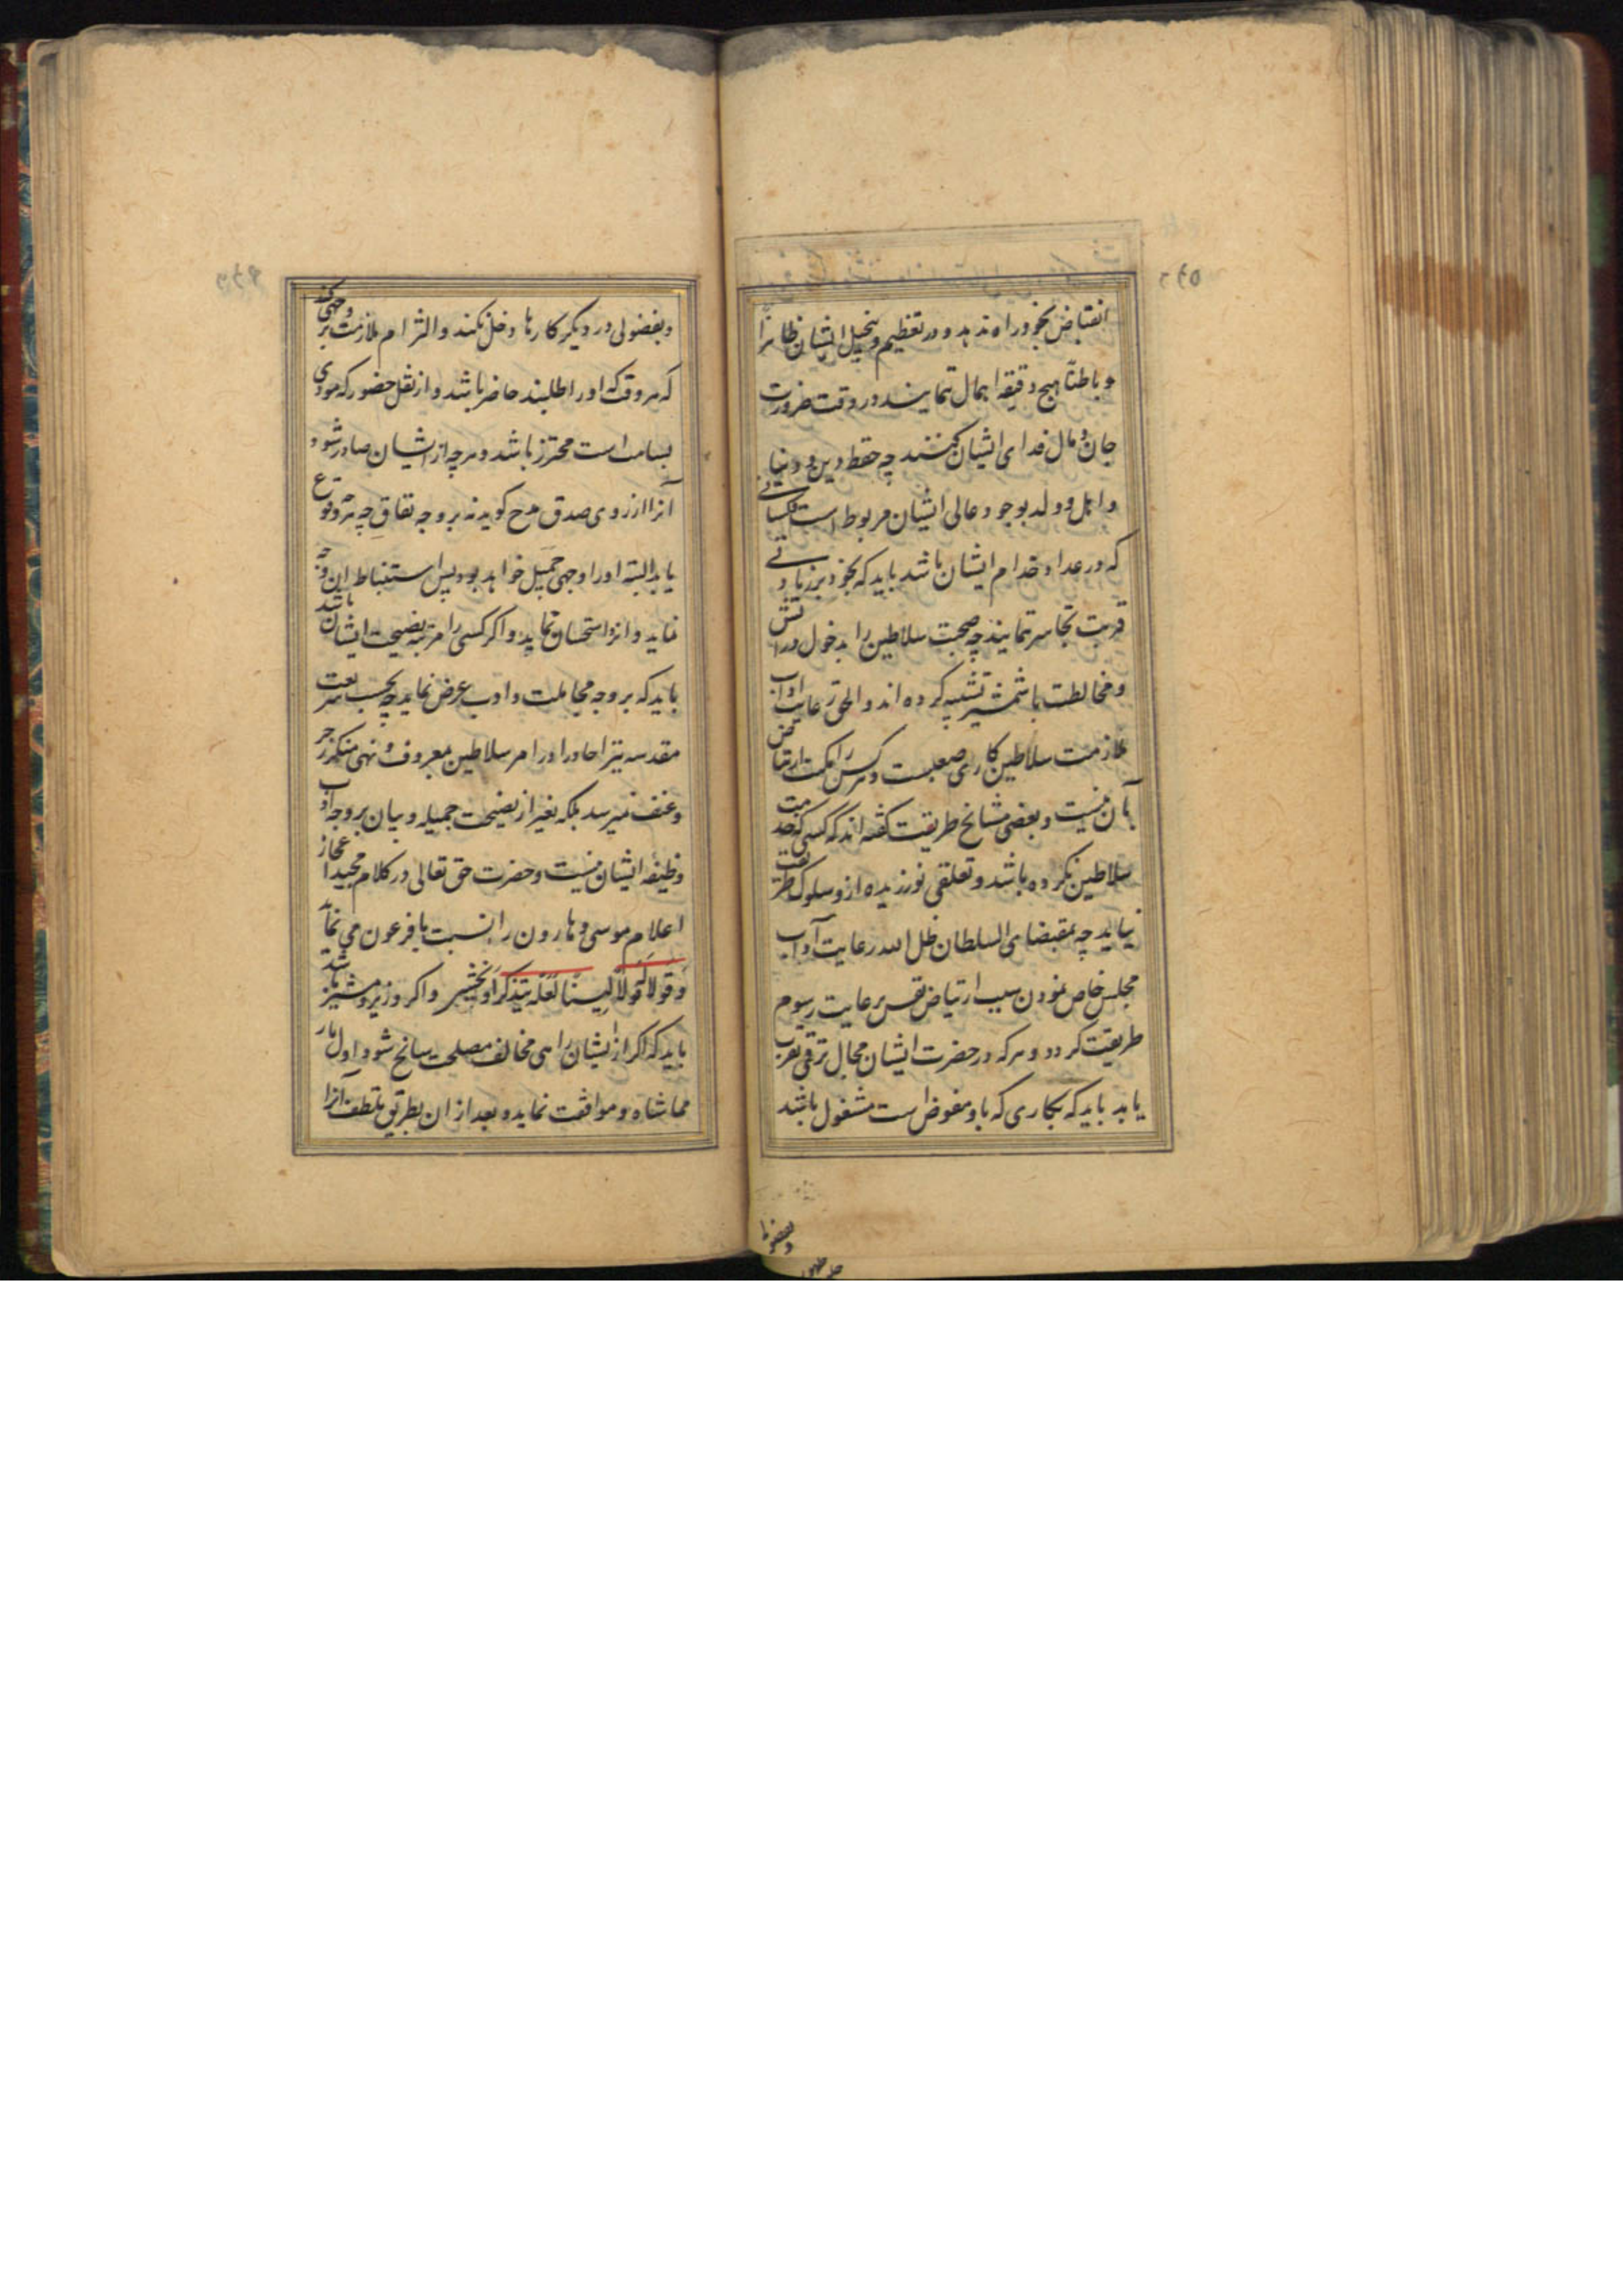 انقباض بخود راه ندهد و در تعظیم و تبجیل ایشان ظاهراً
و باطناً هیچ دقیقه اهمال ننمایند و در وقت ضرورت
جان و مال فدای ایشان کنند چه حفظ دین و دنیا
و اهل و ولد بوجود عالی ایشان مربوط است کسانی
که در عداد خدام ایشان باشد باید که بخود بر زیادتی
قربت تجاسر ننمایند چه صحبت سلاطین را بدخول در آتش
و مخالطت با شمشیر تشبیه کرده اند و الحق رعایت آداب
ملازمت سلاطین کاری صعبست و هرکس را مکنت ارتیاض
بآن نیست و بعضی مشایخ طریقت گفته اند که کسی که خدمت
سلاطین نکرده باشد و تعلقی نورزیده ازو سلوک طریقت
نیاید چه بمقتضای السلطان ظل الله رعایت آداب
مجلس خاص نمودن سبب ارتیاض نفس برعایت رسوم
طریقت کردد و هرکه در حضرت ایشان مجال ترقی تقرب
یابد باید که بکاری که باو مفوض است مشغول باشد
و بفضولی
و بفضولی در دیگر کارها دخل نکند و التزام ملازمت بر وجهی کند
که هر وقت که او را طلبند حاضر باشد و از ثقل حضور که مودی
بسامت است محترز باشد و هرچه از ایشان صادر شود
آنرا از روی صدق مدح کوید نه بر وجه نفاق چه هر وقوع
یابد البته او را وجهی جمیل خواهد بود پس استنباط این وجه
نماید و آنرا استحسان نماید و اکر کسی را مرتبه نصیحت ایشان باشد
باید که بر وجه مجاملت و ادب عرض نماید چه بحسب شریعت
مقدسه نیز احاد را در امر سلاطین بمعروف و نهی منکر زجر
و عنف نمیرسد بلکه بغیر از نصیحت جمیله و بیان بر وجه ادب
وظیفه ایشان نیست و حضرت حق تعالی در کلام مجید اعجاز
اعلام موسی و هارون را نسبت با فرعون می نماید
وَقُولَا لَهُ قَوْلًا لَیِّنًا لَعَلَّهُ یَتَذَکَّرُ أَوْ یَخْشَی و اکر وزیر و مشیر باشد
باید که اکر از ایشان رایی مخالف مصلحت سانح شود اول بار
مماشاه و موافقت نماید و بعد از آن بطریق تلطف آنرا